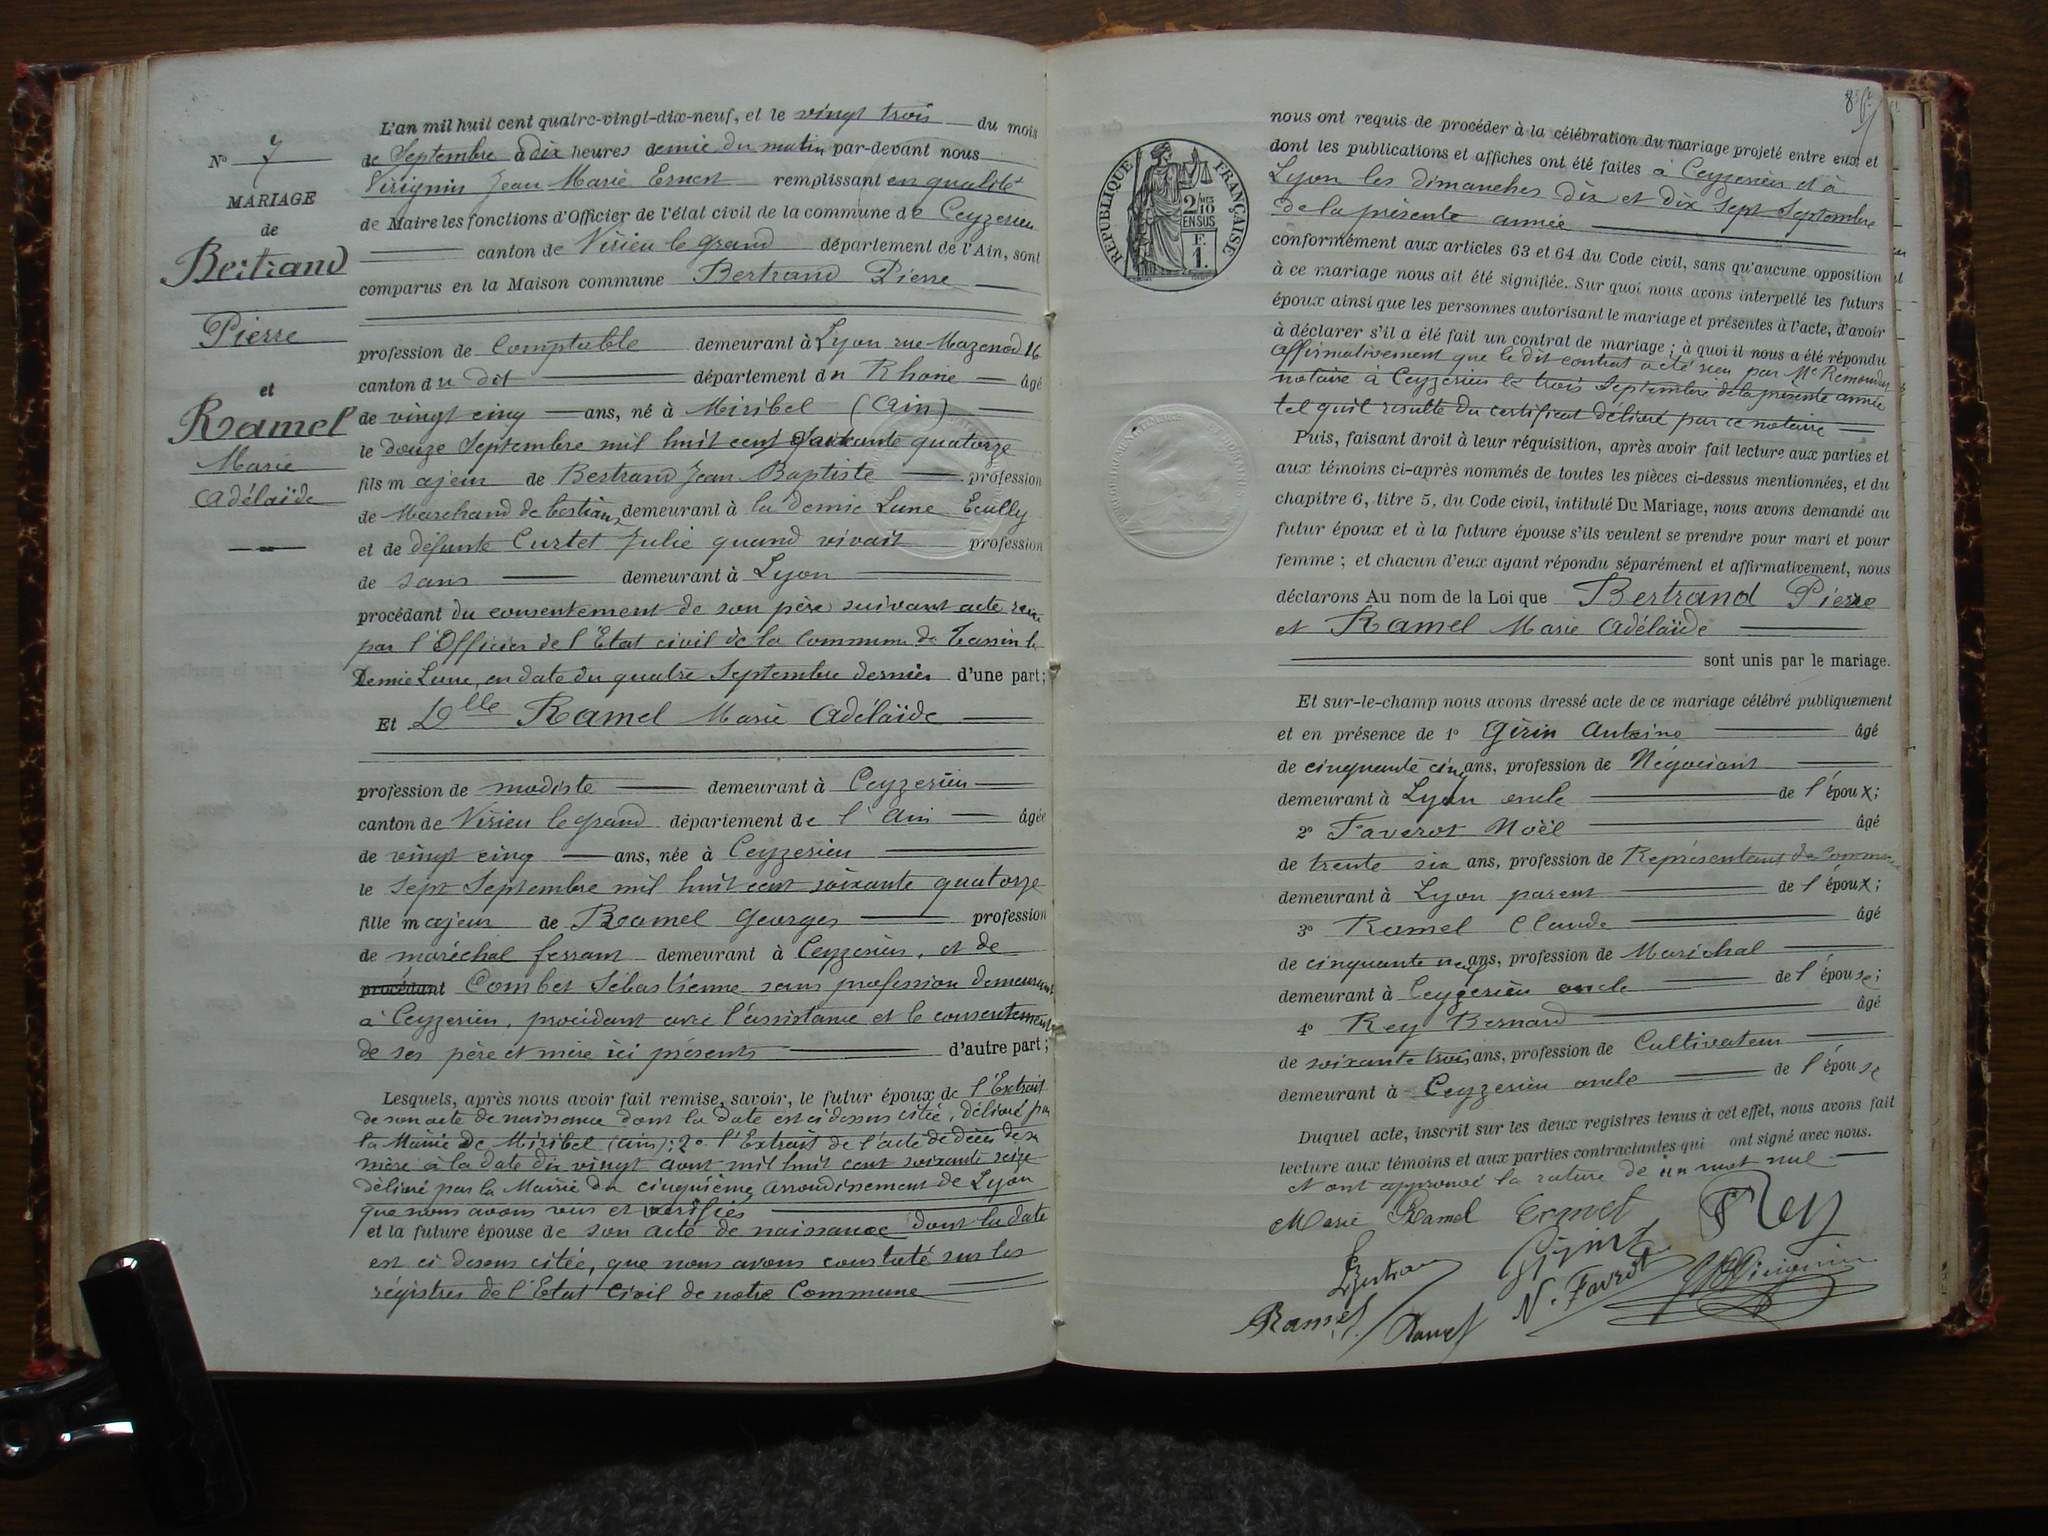 L'an mil huit cent quatre-vingt-dix-neuf, et le vingt trois du mois
de Septembre à dix heures demie du matin par-devant nous
Virignin Jean Marie Ernest remplissant en qualité
de Maire les fonctions d'Officier de l'état civil de la commune de Ceyzerieu
canton de Virieu le grand département de l'Ain, sont
comparus en la Maison commune Bertrand Pierre
N° 7
MARIAGE
de
Bertrand
Pierre
et
Ramel
Marie
Adélaïde
profession de Comptable demeurant à Lyon rue Mazenod 16
canton du dit département du Rhone âgé
de vingt cinq ans, né à Miribel (Ain)
le douze Septembre mil huit cent soixante quatorze
fils majeur de Bertrand Jean Baptiste profession
de Marchand de bestiaux demeurant à la Demie Lune Ecully
et de défunte Curtet Julie quand vivait profession
de sans demeurant à Lyon
procédant du consentement de son père suivant acte reçu
par l'Officier de l'Etat civil de la Commune de Tassin la
Demie Lune, en date du quatre Septembre dernier d'une part;
Et Dlle Ramel Marie Adélaïde
profession de modiste demeurant à Ceyzerieu
canton de Virieu le grand département de l'Ain âgée
de vingt cinq ans, née à Ceyzerieu
le sept Septembre mil huit cent soixante quatorze
fille majeur de Ramel Georges profession
de maréchal ferrant demeurant à Ceyzerieu, et de
procédant Combet Sébastienne sans profession demeurant
à Ceyzerieu, procédant avec l'assistance et le consentement
de ses père et mère ici présents d'autre part;
Lesquels, après nous avoir fait remise, savoir, le futur époux de l'Extrait
de son acte de naissance dont la date est ci dessus citée, délivré par
la Mairie de Miribel (Ain); 2° l'Extrait de l'acte de décès de sa
mère à la date du vingt aout mil huit cent soixante seize
délivré par la Mairie du cinquième arrondissement de Lyon
que nous avons vus et vérifiés
et la future épouse de son acte de naissance dont la date
est ci dessus citée, que nous avons constaté sur les
régistres de l'Etat Civil de notre Commune
REPUBLIQUE FRANÇAISE
2/10
EN SUS
F.
1.
nous ont requis de procéder à la célébration du mariage projeté entre eux et
dont les publications et affiches ont été faites à Ceyzerieu et à
Lyon les dimanches dix et dix sept Septembre
de la présente année
conformément aux articles 63 et 64 du Code civil, sans qu'aucune opposition
à ce mariage nous ait été signifiée. Sur quoi nous avons interpellé les futurs
époux ainsi que les personnes autorisant le mariage et présentes à l'acte, d'avoir
à déclarer s'il a été fait un contrat de mariage; à quoi il nous a été répondu
affirmativement que le dit contrat a été reçu par Me
notaire à Ceyzerieu le trois Septembre de la présente année
tel qu'il résulte du certificat délivré par ce notaire
Puis, faisant droit à leur réquisition, après avoir fait lecture aux parties et
aux témoins ci-après nommés de toutes les pièces ci-dessus mentionnées, et du
chapitre 6, titre 5, du Code civil, intitulé Du Mariage, nous avons demandé au
futur époux et à la future épouse s'ils veulent se prendre pour mari et pour
femme; et chacun d'eux ayant répondu séparément et affirmativement, nous
déclarons Au nom de la Loi que Bertrand Pierre
et Ramel Marie Adélaïde
sont unis par le mariage.
Et sur-le-champ nous avons dressé acte de ce mariage célébré publiquement
et en présence de 1° Girin Antoine âgé
de cinquante cinq ans, profession de Négociant
demeurant à Lyon oncle de l'époux;
2° Faverot Noël âgé
de trente six ans, profession de Représentant de Commerce
demeurant à Lyon parent de l'époux;
3° Ramel Claude âgé
de cinquante neuf ans, profession de Maréchal
demeurant à Ceyzerieu oncle de l'épouse;
4° Rey Bernard âgé
de soixante trois ans, profession de Cultivateur
demeurant à Ceyzerieu oncle de l'épouse
Duquel acte, inscrit sur les deux registres tenus à cet effet, nous avons fait
lecture aux témoins et aux parties contractantes qui ont signé avec nous.
et ont approuvé la rature de un mot nul
Marie Ramel Rey
Bertrand Girin
N. Favrot
Ramel Ramel